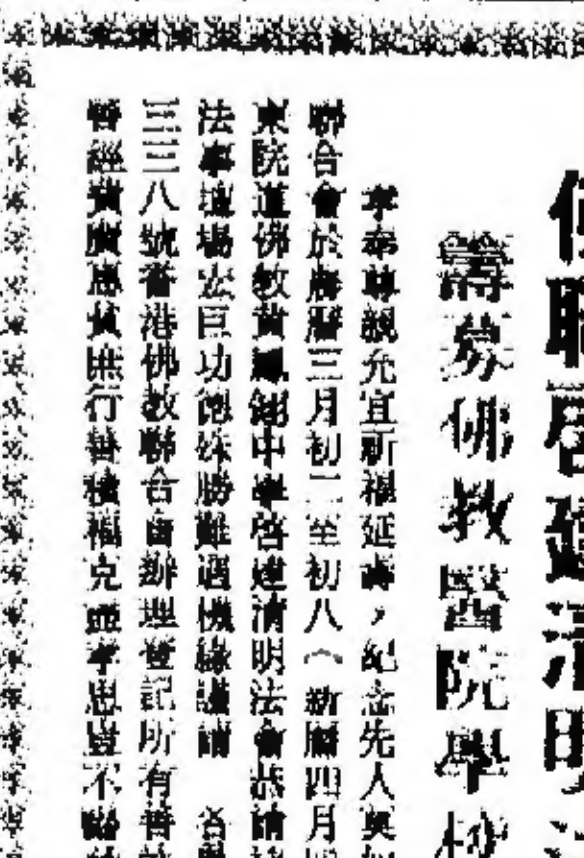 佛聯啓建清明法
籌募佛教醫院學校
孝奉尊親允宜祈福延壽，紀念先人莫如
聯合會於舊曆三月初二至初八（新曆四月
東院道佛教黃鳳翎中學啓建清明法會恭請
法事壇場宏巨功德殊勝難遇機緣謹請 各
三三八號香港佛教聯合會辦理登記所有善
經費廣惠貧行善積福克盡孝思豈不